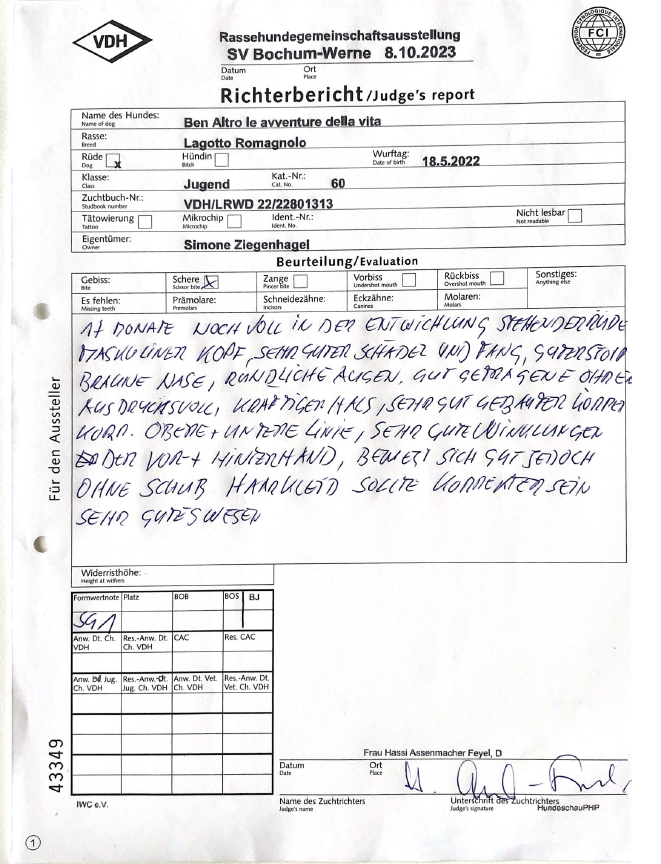 VDH
Rassehundegemeinschaftsausstellung
SV Bochum-Werne 8.10.2023
Datum Ort
Date Place
FCI
FEDERATION CYNOLOGIQUE INTERNATIONALE
Richterbericht/Judge's report
Name des Hundes: Ben Altro le avventure della vita
Name of dog
Rasse: Lagotto Romagnolo
Breed
Rüde x Hündin Wurftag: 18.5.2022
Dog Bitch Date of birth
Klasse: Jugend Kat.-Nr.: 60
Class Cat. No.
Zuchtbuch-Nr.: VDH/LRWD 22/22801313
Studbook number
Tätowierung Mikrochip Ident.-Nr.: Nicht lesbar
Tattoo Microchip Ident. No. Not readable
Eigentümer: Simone Ziegenhagel
Owner
Beurteilung/Evaluation
Gebiss: Schere x Zange Vorbiss Rückbiss Sonstiges:
Bite Scissor bite Pincer bite Undershot mouth Overshot mouth Anything else
Es fehlen: Prämolare: Schneidezähne: Eckzähne: Molaren:
Missing teeth Premolars Incisors Canines Molars
17 MONATE NOCH VOLL IN DER ENTWICKLUNG STEHENDER RÜDE
MASKULINER KOPF, SEHR GUTER SCHÄDEL UND FANG, GUTER STOP
BRAUNE NASE, RUNDLICHE AUGEN. GUT GETRAGENE OHREN
AUSDRUCKSVOLL, KRÄFTIGER HALS, SEHR GUT GEBAUTER KÖRPER
KORR. OBERE + UNTERE LINIE, SEHR GUTE WINKLUNGEN
DER VOR + HINTERHAND, BEWEGT SICH GUT JEDOCH
OHNE SCHUB HAARKLEID SOLLTE KORREKTER SEIN
SEHR GUTES WESEN
Für den Aussteller
Widerristhöhe:
Height at withers
Formwertnote Platz BOB BOS BJ
SG1
Anw. Dt. Ch. VDH Res.-Anw. Dt. Ch. VDH CAC Res. CAC
Anw. Bd Jug. Ch. VDH Res.-Anw. Dt. Jug. Ch. VDH Anw. Dt. Vet. Ch. VDH Res.-Anw. Dt. Vet. Ch. VDH
43349
Frau Hassi Assenmacher Feyel, D
Datum Ort
Date Place
Name des Zuchtrichters Unterschrift des Zuchtrichters
Judge's name Judge's signature HundeschauPHP
IWC e.V.
1